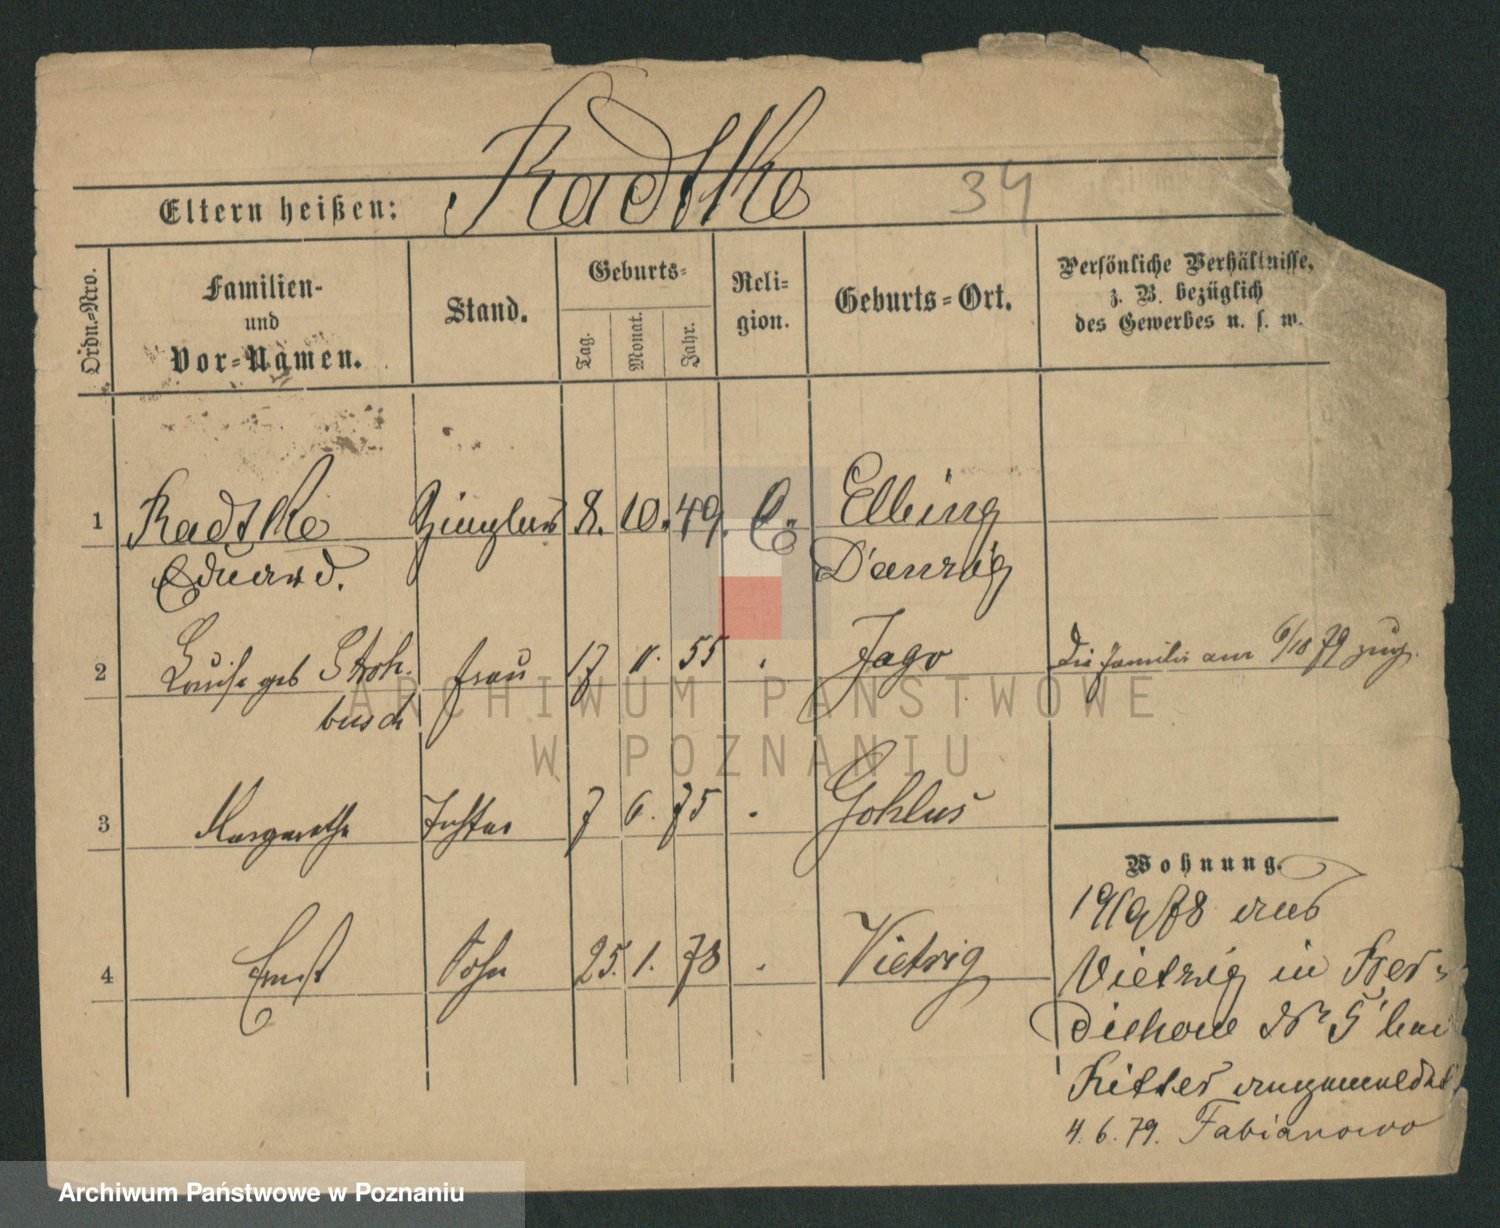 Radtke
34
Eltern heißen:
Ordn.-Nro.
Familien-
und
Vor-Namen.
Stand.
Geburts-
Tag.
Monat.
Jahr.
Reli-
gion.
Geburts-Ort.
Persönliche Verhältnisse,
z. B. bezüglich
des Gewerbes u. s. w.
1 Radtke Ziegler 8. 10. 49. E. Elbing
Eduard. Danzig
2 Luise geb Stroh- frau 17 11. 55 Jago Die Familie am 6/10 79 zug.
busch
3 Margarethe Tochter 7 6. 75 Gohlus
4 Ernst Sohn 25. 1. 78 Vietzig
Wohnung.
19/9 78 aus
Vietzig in
Nr 5 bei
Ritter angemeldet
4. 6. 79. Fabianowo
ARCHIWUM PAŃSTWOWE
W POZNANIU
Archiwum Państwowe w Poznaniu